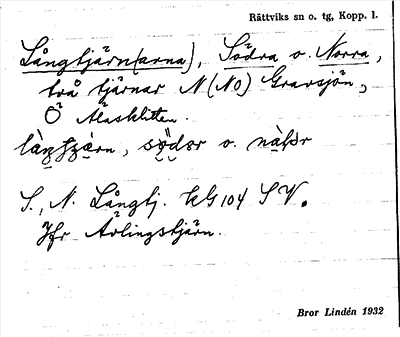 Rättviks sn o. tg, Kopp. l.
Långtjärn(arna), Södra o. Norra,
två tjärnar N (NO) Gravsjön,
Ö Alasklitten.
o. 
S., N. Långtj. kG 104 SV.
Jfr Arlingstjärn.
Bror Lindén 1932